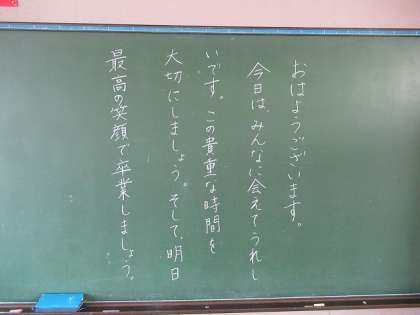 おはようございます。
今日は、みんなに会えてうれし
いです。この貴重な時間を
大切にしましょう。そして、明日
最高の笑顔で卒業しましょう。